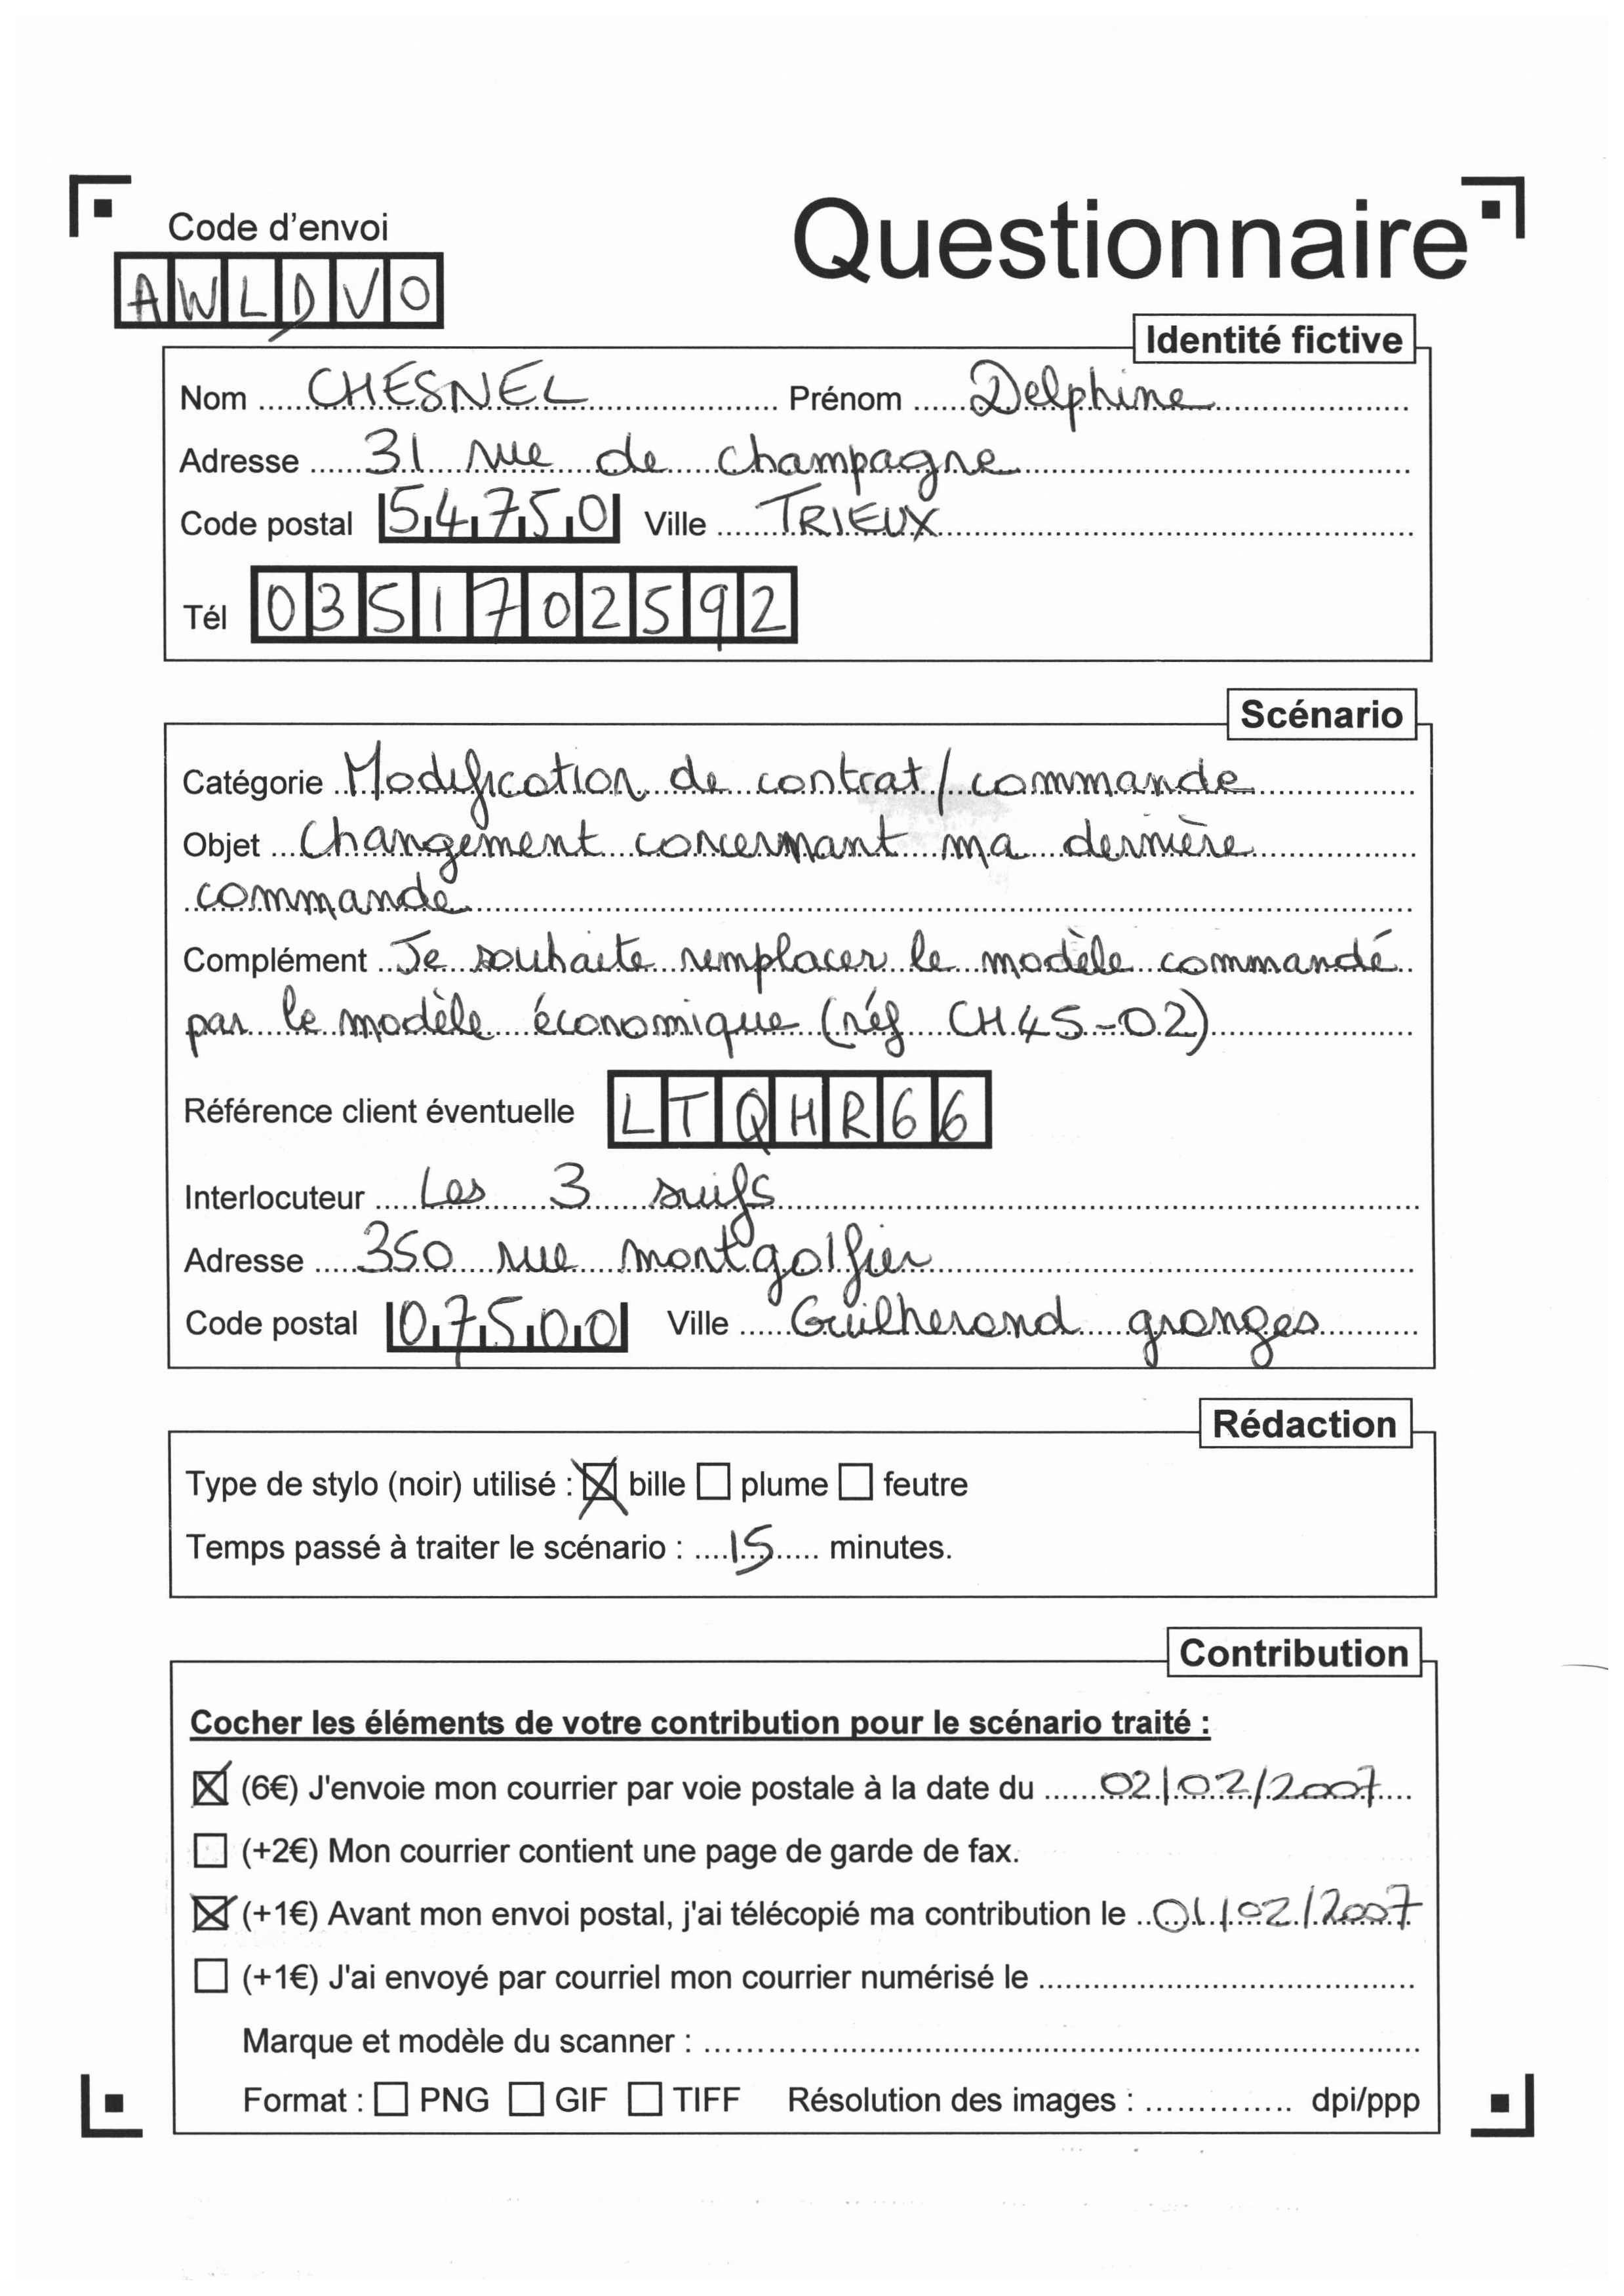 Code d'envoi
Questionnaire
AWLDVO
Identité fictive
Nom CHESNEL Prénom Delphine
Adresse 31 rue de champagne
Code postal 54750 Ville TRIEUX
Tél 0351702592
Scénario
Catégorie Modification de contrat / commande
Objet Changement concernant ma dernière
commande
Complément Je souhaite remplacer le modèle commandé
par le modèle économique (réf CH45-02)
Référence client éventuelle LTQHR66
Interlocuteur Les 3 suifs
Adresse 350 rue montgolfier
Code postal 07500 Ville Guilherand granges
Rédaction
Type de stylo (noir) utilisé : ☒ bille ☐ plume ☐ feutre
Temps passé à traiter le scénario : 15 minutes.
Contribution
Cocher les éléments de votre contribution pour le scénario traité :
☒ (6€) J'envoie mon courrier par voie postale à la date du 02/02/2007
☐ (+2€) Mon courrier contient une page de garde de fax.
☒ (+1€) Avant mon envoi postal, j'ai télécopié ma contribution le 01/02/2007
☐ (+1€) J'ai envoyé par courriel mon courrier numérisé le
Marque et modèle du scanner :
Format : ☐ PNG ☐ GIF ☐ TIFF Résolution des images : dpi/ppp